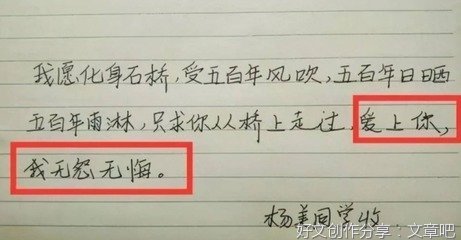 我愿化身石桥,受五百年风吹,五百年日晒
五百年雨淋,只求你从桥上走过,爱上你,
我无怨无悔。
杨美同学收
好文创作分享:文章吧